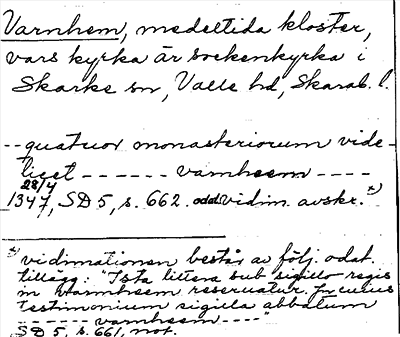 Varnhem, medeltida kloster,
vars kyrka är sockenkyrka i
Skarke sn, Valle hd, Skarab. l.
-- quatuor monasteriorum vide-
licet ------ varnheem ----
28/4
1347, SD 5, s. 662. odat vidim. avskr. x)
x) vidimationen består av följ. odat.
tillägg: "Ista littera sub sigillo regis
in warnheem reseruatur. Jn cuius
testimonium sigilla abbatum
------ varnheem ----"
SD 5, s. 661, not.